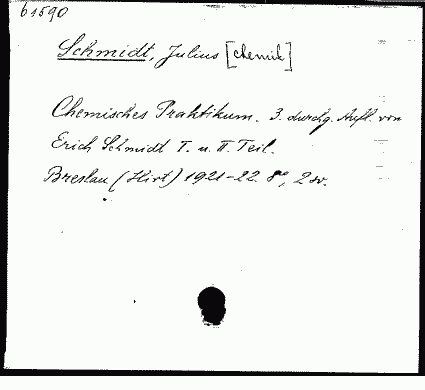 61590
Schmidt, Julius [Chemik]
Chemisches Praktikum. 3. durchg. Aufl. von
Erich Schmidt I. u. II. Teil.
Breslau (Hirt) 1921-22. 8°, 2 sv.